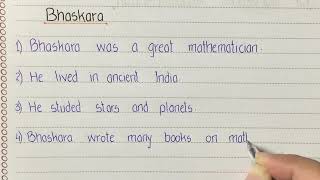 Bhaskara
1) Bhaskara was a great mathematician.
2) He lived in ancient India
3) He studed stars and planets
4) Bhaskara wrote many books on math